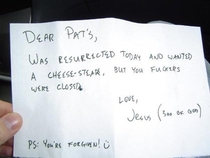 DEAR PAT'S,
WAS RESURRECTED TODAY AND WANTED
A CHEESE-STEAK, BUT YOU FUCKERS
WERE CLOSED.
LOVE,
JESUS (SON OF GOD)
PS: YOU'RE FORGIVEN! :)